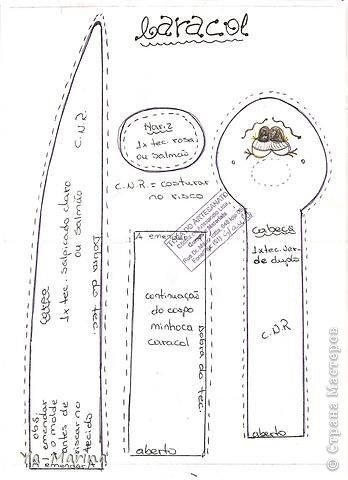 caracol
C.N.R.
Corpo
1x tec. salpicado claro
ou salmão
Dobra do tec.
obs.
emendar
o molde
antes de
riscar no
tecido
emendar A
Nariz
1x tec. rosa
ou salmão
C.N.R = costurar
no risco
A emendar
continuação
do corpo
minhoca
caracol
Dobra do tec.
aberto
Cabeça
1x tec. ver
de duplo
C.N.R
aberto
Ya-Marina
© Страна Мастеров